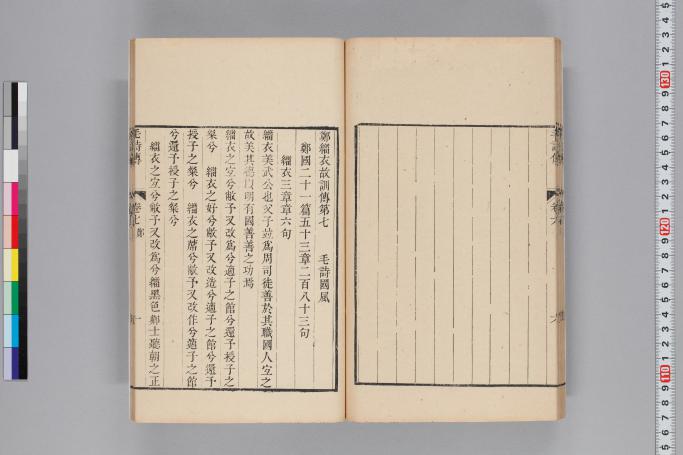 鄭緇衣故訓傳第七　毛詩國風
鄭國二十一篇五十三章二百八十三句
緇衣三章章六句
緇衣美武公也父子並爲周司徒善於其職國人宐之
故美其德以明有國善善之功焉
緇衣之宐兮敝予又改爲兮適子之館兮還予授子之
粲兮　緇衣之好兮敝予又改造兮適子之館兮還予
授子之粲兮　緇衣之蓆兮敝予又改作兮適子之館
兮還予授子之粲兮
緇衣之宐兮敝予又改爲兮緇黑色卿士聽朝之正
毛詩傳
卷七
鄭
一